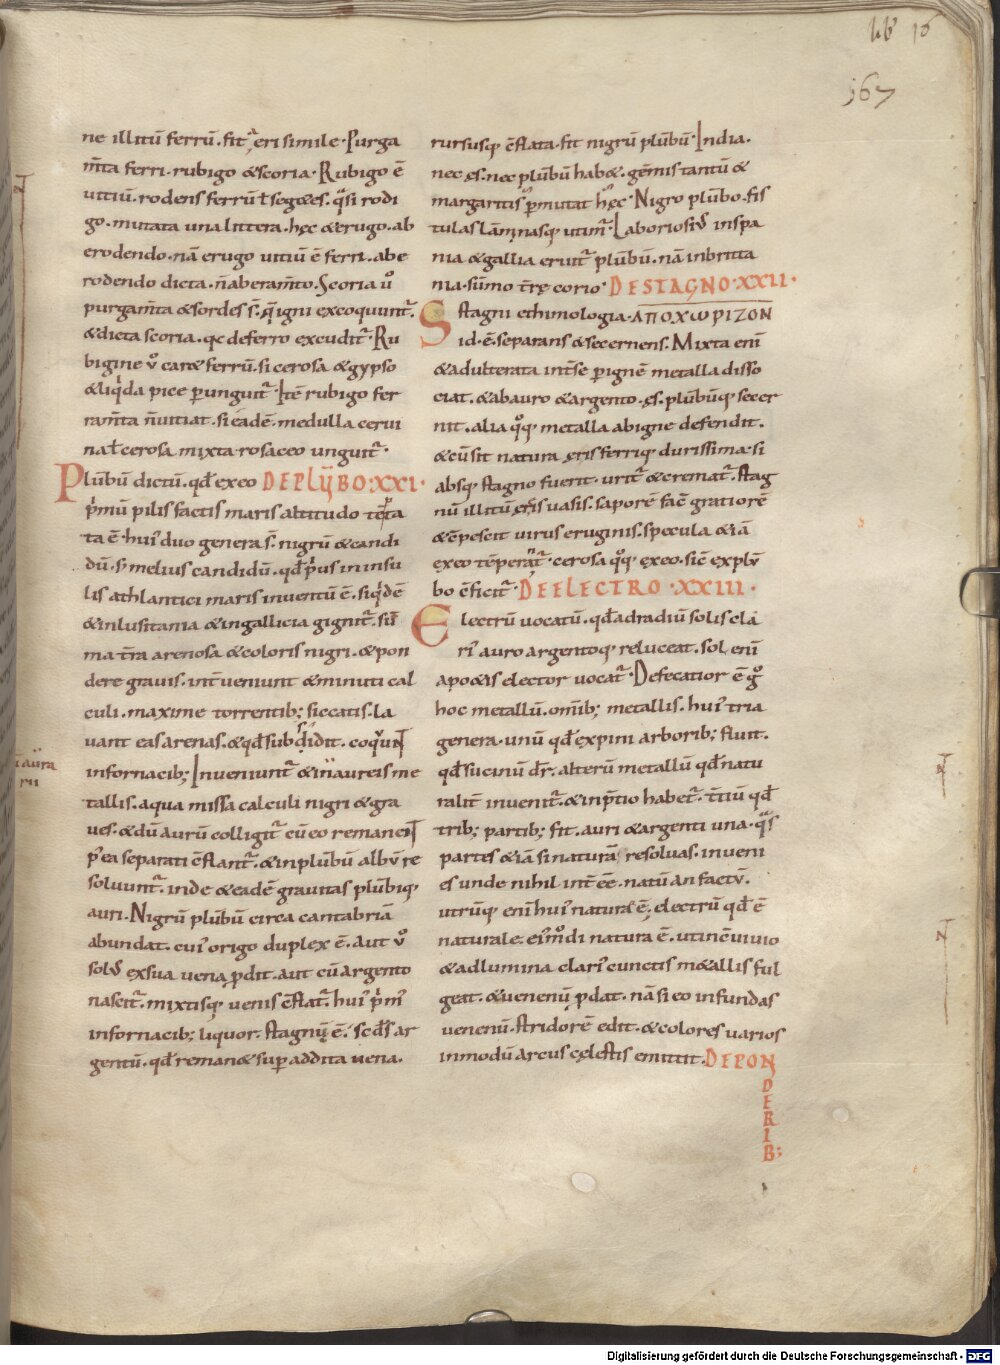 lib 16
167
ne illitū ferrū. fit ęri simile. Purga
m̄ta ferri. rubigo & scoria. Rubigo ē
uitiū. rodens ferrū ł seg&es. q̄si rodi
go. mutata una littera. hęc & ęrugo. ab
erodendo. nā erugo uitiū ē ferri. ab e
rodendo dicta. n̄ aberam̄to. Scoria ů
purgam̄ta & sordes s̄. q̨ igni excoquunt̄.
& dicta scoria. qc de ferro excudit̄. Ru
bigine ů car& ferrū. si cerosa & gypso
& liqida pice ꝑunguit̄. Itē rubigo fer
ram̄ta n̄ uitiat. si eadē medulla cerui
na ł cerosa mixta rosaceo unguit̄.
Plūbū dictū. qđ ex eo DE PLŪBO. XXI.
pimū pilis factis maris altitudo tēpta
ta ē. hui' duo genera s̄. nigrū & candi
dū. s; melius candidū. qđ pius in insu
lis athlantici maris inuentū ē. siqidē
& in lusitania & in gallicia gignit̄. sū
ma t̄ra arenosa & coloris nigri. & pon
dere grauis. int̄ueniunt & minuti cal
culi. maxime torrentib; siccatis. la
uant eas arenas. & qđ subsidit. coquunt
in fornacib; Inueniunt̄ & in aureis me
tallis. aqua missa calculi nigri & gra
ues. & dū aurū colligit̄ cū eo remanent
p' ea separati cflant̄. & in plūbū albū re
soluunt̄. inde & eadē grauitas plūbi q̨
auri. Nigrū plūbū circa cantabriā
abundat. cui' origo duplex ē. aut ů
solū ex sua uena ꝓdit. aut cū argento
nascit̄. mixtisq; uenis cflat̄. hui' pim'
in fornacib; liquor. stagnū ē. scđs ar
gentū. qđ reman& suꝑ addita uena.
rursusq; cflata. fit nigrū plūbū. India.
nec ęs. nec plūbū hab&. gēmis tantū &
margaritis ꝑmutat hęc. Nigro plūbo. fis
tulas lāmnasq; utim̄. Laboriosiů in spa
nia & gallia eruit̄ plūbū. nā in britta
nia. sūmo t̄rę corio. DE STAGNO. XXII.
Stagni ethimologia. ΑΠΟΧѠΡΙΖΟΝ
id. ē. separans & secernens. Mixta enī
& adulterata int̄ se ꝑ ignē metalla disso
ciat. & ab auro & argento. ęs. plūbūq; secer
nit. alia qq; metalla ab igne defendit.
& cū sit natura ęris ferriq; durissima. si
absq; stagno fuerit. urit̄ & cremat̄. stag
nū illitū ęreis uasis. saporē fac̄ gratiorē
& cpescit uirus eruginis. specula & iā
ex eo tēperant̄. cerosa qq; ex eo. sic̄ ex plū
bo cficit̄. DE ELECTRO. XXIII.
Electrū uocatū. qđ ad radiū solis cla
ri' auro argentoq; reluceat. sol. enī
a po&is elector uocat̄. Defecatior ē gͦ
hoc metallū. omīb; metallis. hui' tria
genera. unū qđ ex pini arborib; fluit.
qđ sucinū dr̄. alterū metallū qđ natu
ralit̄ inuenit̄. & in ptio habet̄. t̄tiū qđ
trib; partib; fit. auri & argenti una. qas
partes & iā si naturā resoluas. inueni
es unde nihil int̄ēē. natū an factū.
utrūq; enī hui' naturæ ē, electrū qđ ē
naturale. ei'modi natura ē. ut in cuiuio
& ad lumina clari' cunctis m&allis ful
geat. & uenenū ꝓdat. nā si eo infundas
uenenū. stridorē edit. & colores uarios
in modū arcus cęlestis emittit. DE PON
DERIB;